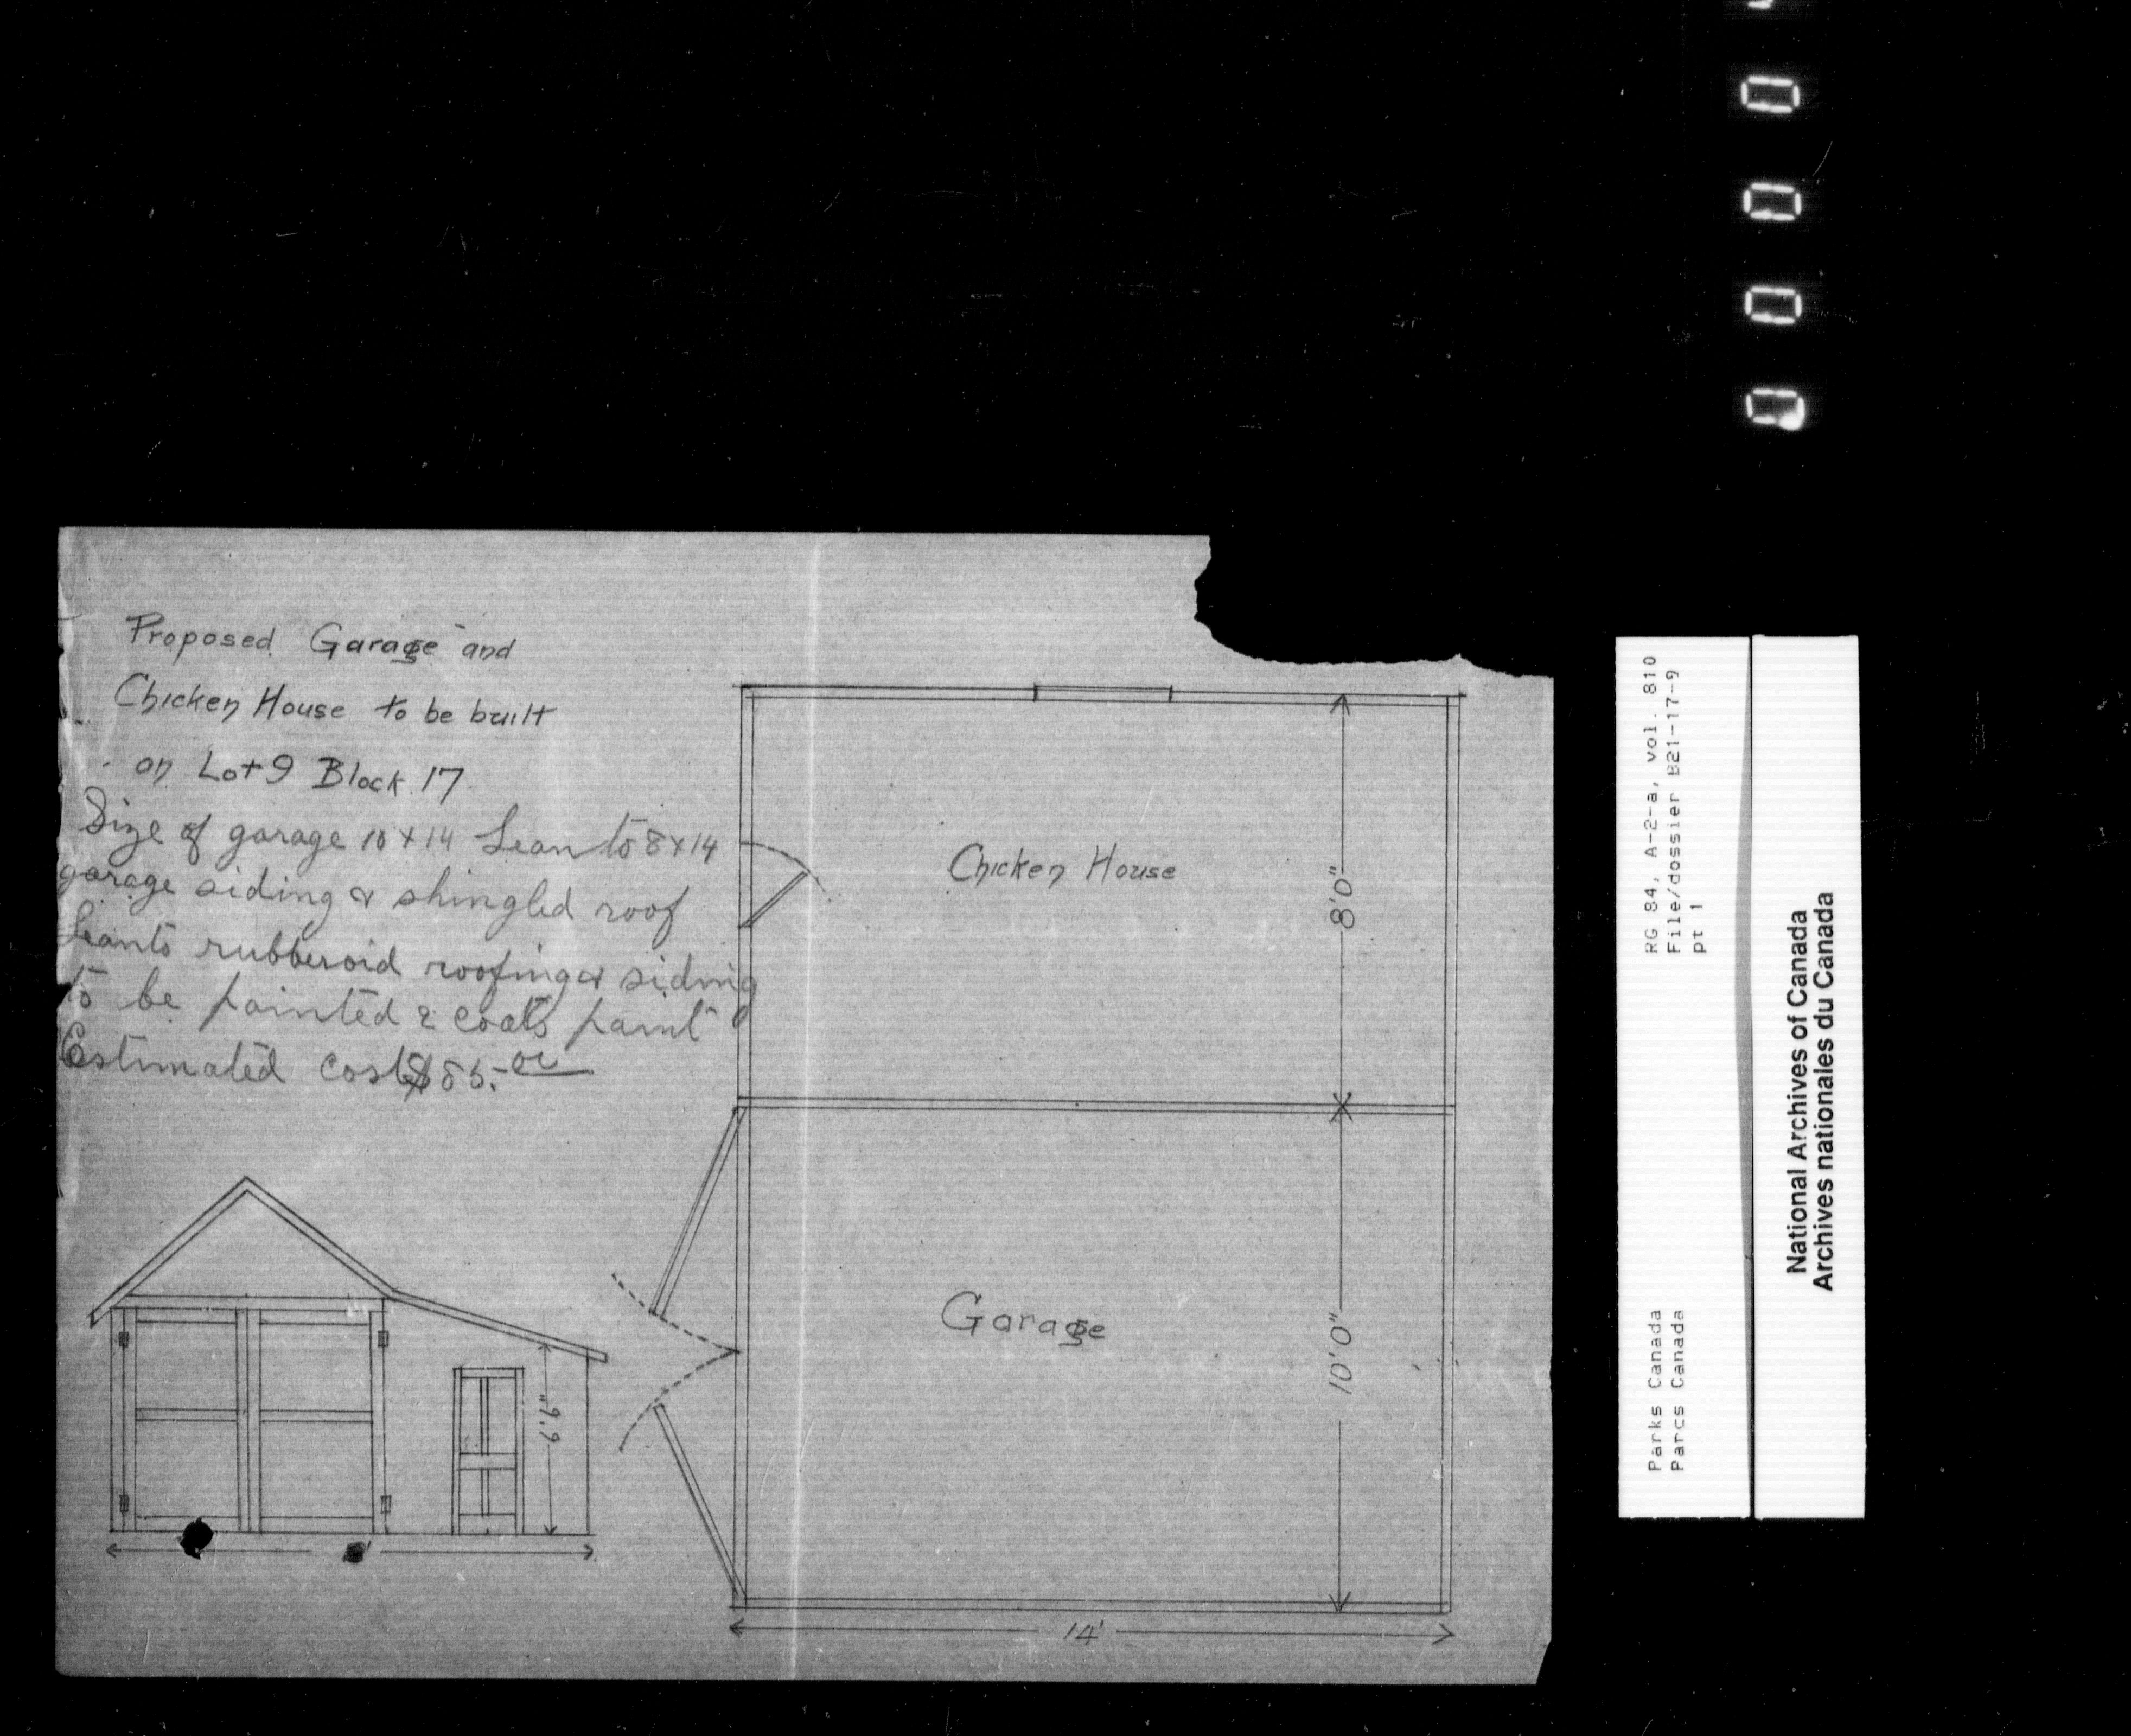 Proposed Garage and
Chicken House to be built
on Lot 9 Block 17
Size of garage 10 x 14 Leanto 8 x 14
garage siding & shingled roof
Leanto rubberoid roofing & siding
to be painted 2 coats paint
Estimated cost $85.00
Chicken House
8'0"
Garage
10'.0"
14'
6'.6"
RG 84, A-2-a, vol. 810
File/dossier B21-17-9
pt 1
Parks Canada
Parcs Canada
National Archives of Canada
Archives nationales du Canada
0
0
0